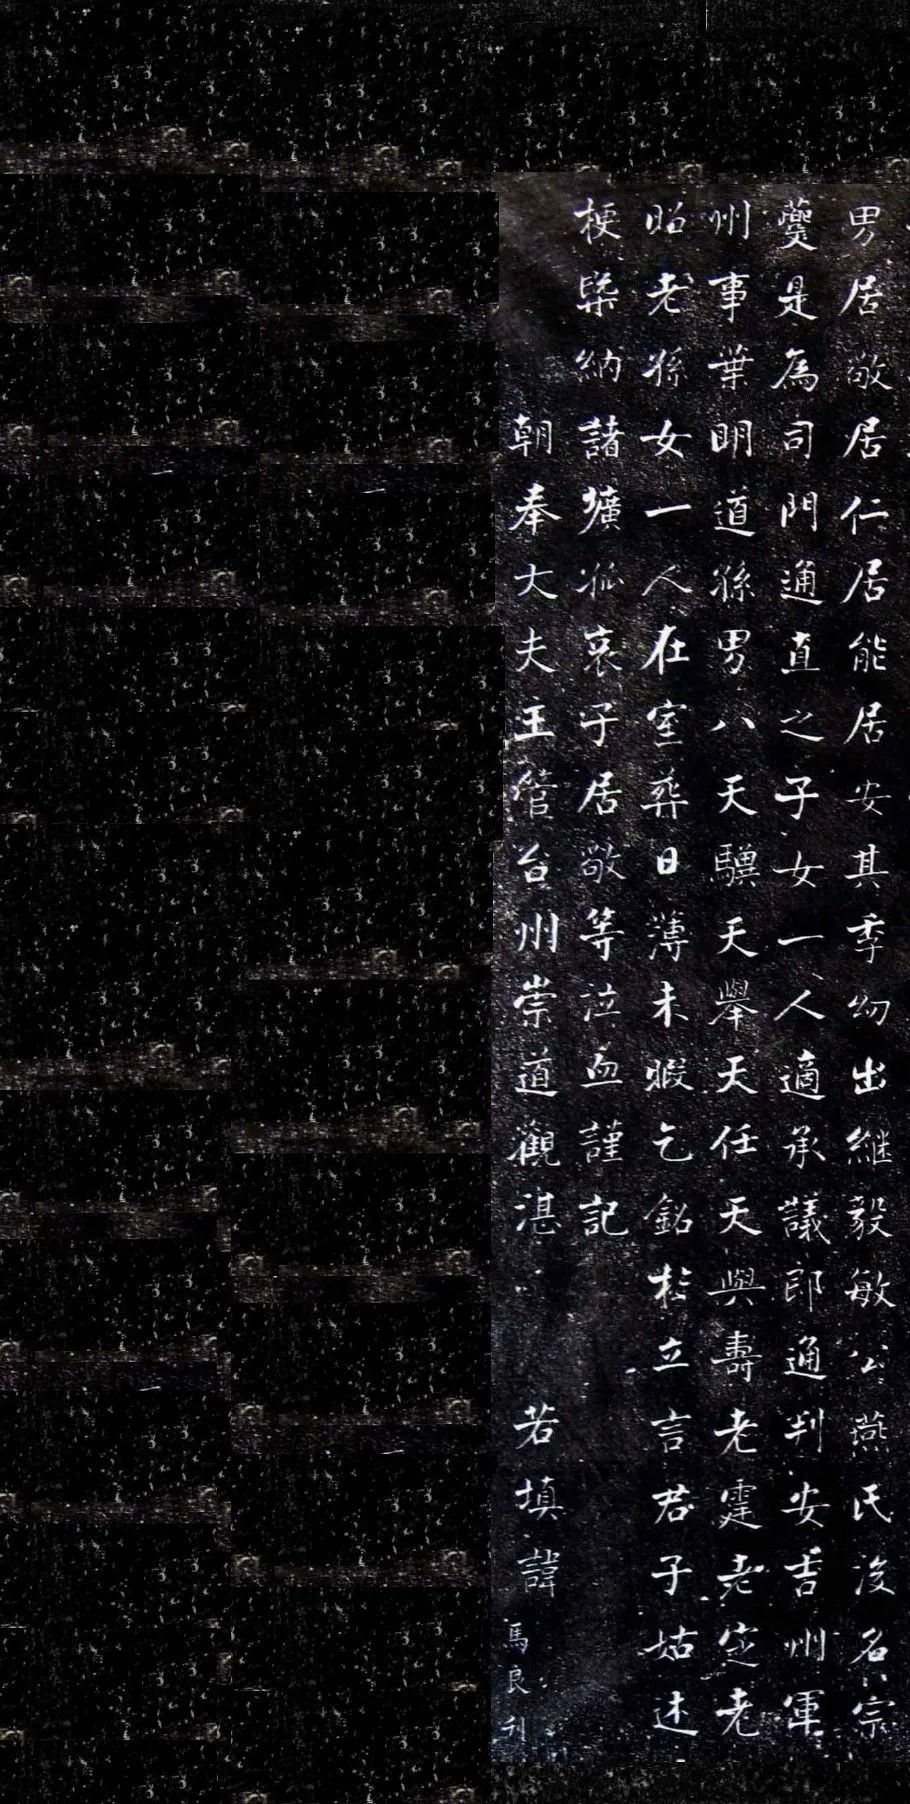 男居敬居仁居能居安其季幼出継毅敏公燕氏後名宗
夔是為司門通直之子女一人適承議郎通判安吉州軍
州事葉明道孫男八天驥天舉天任天與壽老霆老定老
昭老孫女一人在室葬日薄未暇乞銘於立言君子姑述
梗槩納諸壙孤哀子居敬等泣血謹記
朝奉大夫主管台州崇道觀湛 若填諱
馬良刊